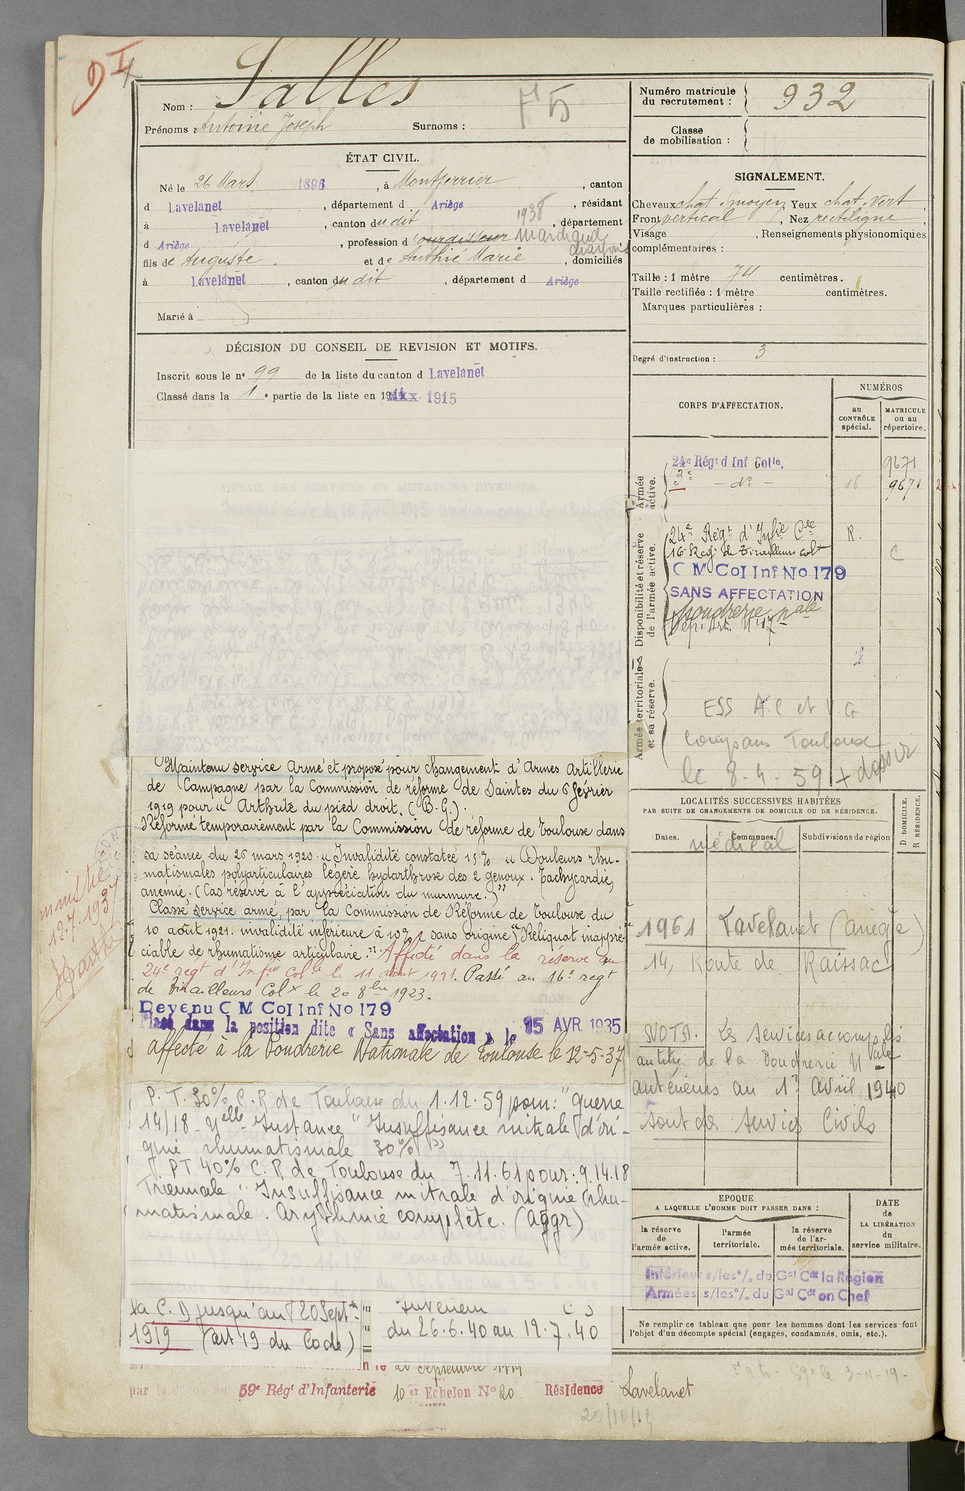 Nom : Salles
Prénoms : Antoine Joseph Surnoms :
75
ÉTAT CIVIL.
Né le 26 Mars 1896, à Montferrier, canton
d Lavelanet, département d Ariège, résidant
à Lavelanet, canton du dit, département
d Ariège, profession d'ourdisseur 1938 Marchand
fils de Auguste et de Authié Marie, domiciliés
à Lavelanet, canton du dit, département d Ariège
Marié à
DÉCISION DU CONSEIL DE REVISION ET MOTIFS.
Inscrit sous le n° 99 de la liste du canton d Lavelanet
Classé dans la 1e partie de la liste en 1915
Maintenu service Armé et proposé pour changement d'Armes Artillerie
de Campagne par la Commission de réforme de Saintes du 6 février
1919 pour « Arthrite du pied droit. (B.G.).
Réformé temporairement par la Commission de réforme de Toulouse dans
sa séance du 26 mars 1920. « Invalidité constatée 15% « Douleurs rhu-
matismales polyarticulaires légère hydarthrose des 2 genoux. Tachycardie,
anémie. (Cas réservé à l'appréciation du murmure.) »
Classé service armé, par la Commission de Réforme de Toulouse du
10 août 1921. invalidité inférieure à 10% sans origine, "Reliquat inappré-
ciable de rhumatisme articulaire." Affecté dans la réserve au
24e régt d'Infie Colle le 11 août 1921. Passé au 16e regt
de Tirailleurs Colx le 20 8bre 1923.
Devenu C M Col Inf No 179
Placé dans la position dite « Sans affectation » le 15 AVR. 1935
affecté à la Poudrerie Nationale de Toulouse le 12-5-37
P. T. 30% C.R de Toulouse du 1.12.59 pour : "guerre
14/18 - Nelle Instance" Insuffisance mitrale d'ori-
gine rhumatismale 30%"
T. PT 40% C.R de Toulouse du 7.11.61 pour : g. 14.18
Triennale "Insuffisance mitrale d'origine rhu-
matismale. Arythmie complète. (Aggr)
la C. D jusqu'au 20 Septbre
1919 (art 49 du Code)
du 26.6.40 au 19.7.40
20 septembre 1919
59e Régt d'Infanterie 10er Echelon No 20 Résidence Lavelanet
20/10/19
Numéro matricule
du recrutement : 932
Classe
de mobilisation :
SIGNALEMENT.
Cheveux chat. moyen Yeux chat. vert
Front vertical, Nez rectiligne,
Visage, Renseignements physionomiques
complémentaires :
Taille : 1 mètre 74 centimètres.
Taille rectifiée : 1 mètre centimètres.
Marques particulières :
Degré d'instruction : 3
CORPS D'AFFECTATION.
NUMÉROS
au
CONTRÔLE
spécial.
MATRICULE
ou au
répertoire.
Armée
active.
24e Régt d Inf Colle. 9671
3e - do - 18 9671
Disponibilité et réserve
de l'armée active.
24e Régt d'Infie Cle R.
16e Regt de Tirailleurs colx C
C M Col Inf No 179
SANS AFFECTATION
Poudrerie Nale
Dep. Art. N° 17
Armée territoriale
et sa réserve.
ESS AC et VG
Compans Toulouse
le 8-4-59 + dossier
médical
LOCALITÉS SUCCESSIVES HABITÉES
PAR SUITE DE CHANGEMENTS DE DOMICILE OU DE RÉSIDENCE.
Dates. Communes. Subdivisions de région
D DOMICILE.
R RÉSIDENCE.
1961 Lavelanet (Ariège)
14, Route de Raissac
NOTA. Les services accomplis
au titre de la Poudrerie Nale
antérieurs au 1er Avril 1940
sont des services Civils
EPOQUE
A LAQUELLE L'HOMME DOIT PASSER DANS :
la réserve
de
l'armée active.
l'armée
territoriale.
la réserve
de l'ar-
mée territoriale.
DATE
de
LA LIBÉRATION
du
service militaire.
Intérieur s/les °/. du Gal Cdt la Région
Armées s/les °/. du Gal Cdt en Chef
Ne remplir ce tableau que pour les hommes dont les services font
l'objet d'un décompte spécial (engagés, condamnés, omis, etc.).